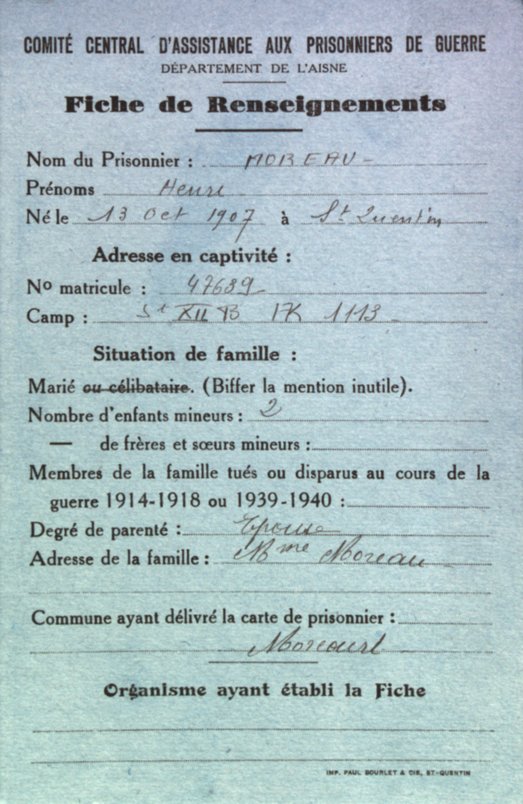 COMITÉ CENTRAL D'ASSISTANCE AUX PRISONNIERS DE GUERRE
DÉPARTEMENT DE L'AISNE
Fiche de Renseignements
Nom du Prisonnier : MOREAU
Prénoms Henri
Né le 13 Oct 1907 à St Quentin
Adresse en captivité :
No matricule : 47689
Camp : St XII B IK 1113
Situation de famille :
Marié ou célibataire. (Biffer la mention inutile).
Nombre d'enfants mineurs : 2
— de frères et sœurs mineurs :
Membres de la famille tués ou disparus au cours de la
guerre 1914-1918 ou 1939-1940 :
Degré de parenté : Epouse
Adresse de la famille : Mme Moreau
Commune ayant délivré la carte de prisonnier :
Morcourt
Organisme ayant établi la Fiche
IMP. PAUL BOURLET & CIE, ST-QUENTIN